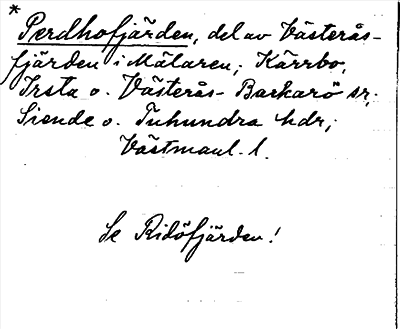 *
Perdhofjärden, del av Västerås-
fjärden i Mälaren; Kärrbo,
Irsta o. Västerås-Barkarö sr,
Siende o. Tuhundra hdr,
Västmanl. l.
Se Ridöfjärden!